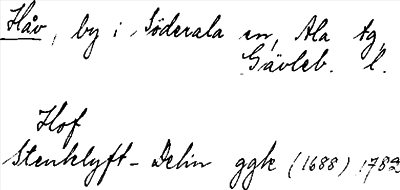 Håv, by i Söderala sn, Ala tg,
Gävleb. l.
Hof
Stenklyft - Delin ggk (1688) 1782